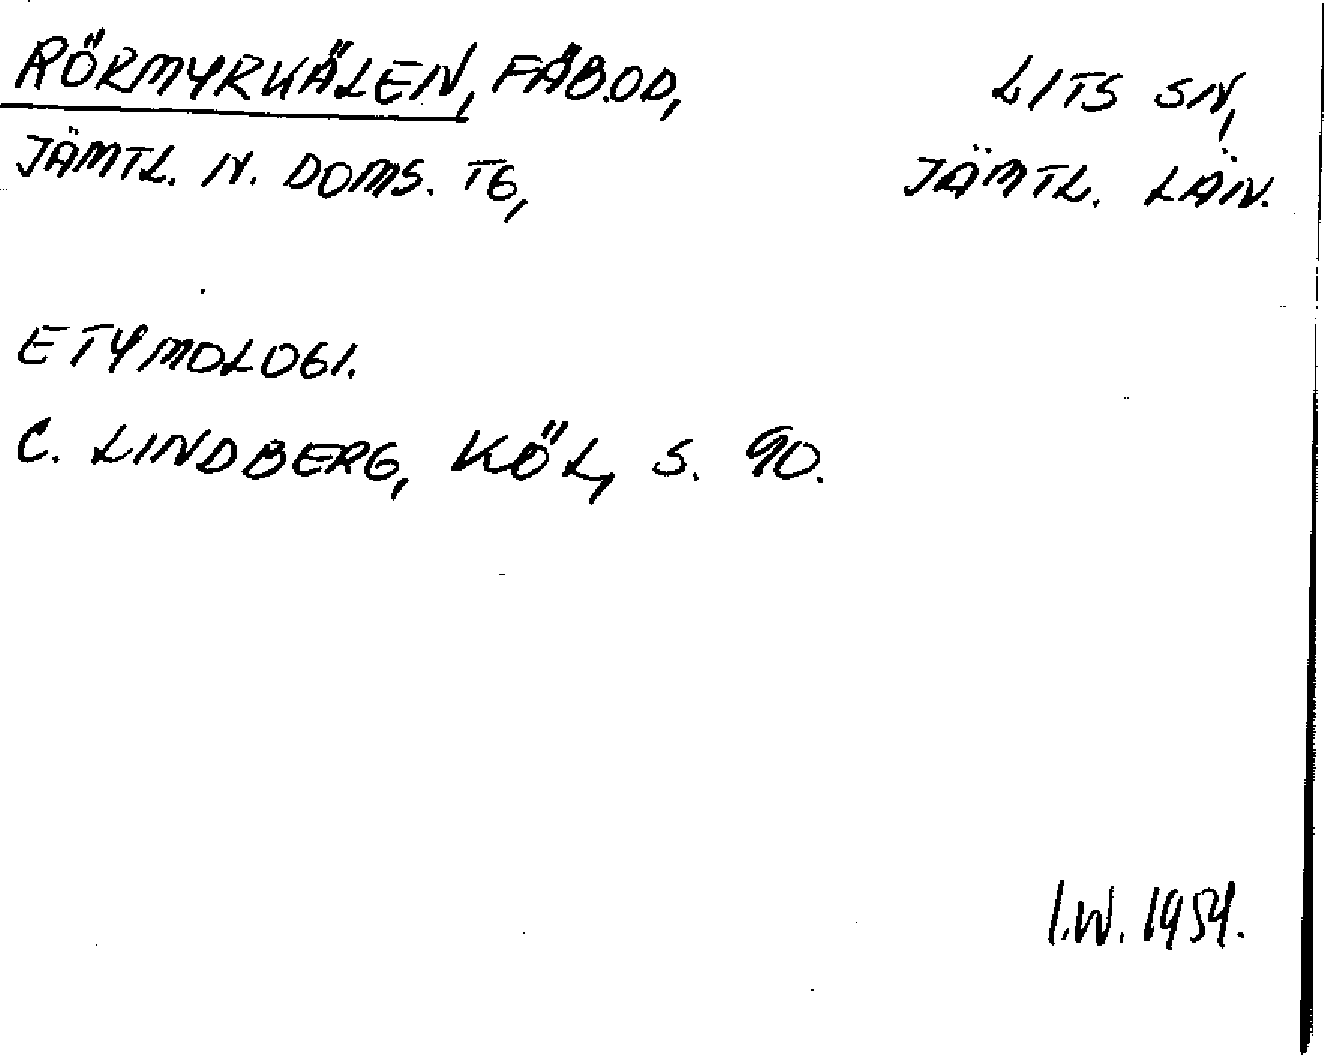 RÖRMYRKÄLEN, FÄBOD, LITS SN,
JÄMTL. N. DOMS. TG, JÄMTL. LÄN.
ETYMOLOGI.
C. LINDBERG, KÖL, S. 90.
I.W. 1954.